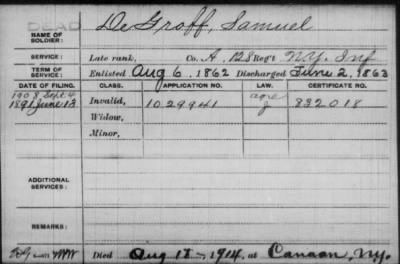 DEAD
NAME OF SOLDIER: DeGroff, Samuel
SERVICE: Late rank, Co. A, 128 Reg't N.Y. Inf
TERM OF SERVICE: Enlisted Aug 6, 1862 Discharged June 2, 1863
DATE OF FILING. CLASS. APPLICATION NO. LAW. CERTIFICATE NO.
1908 Sept. 4 age
1891 June 13 Invalid, 1029941 J 832018
Widow,
Minor,
ADDITIONAL SERVICES:
REMARKS:
Died Aug 18 1914, at Canaan, N.Y.